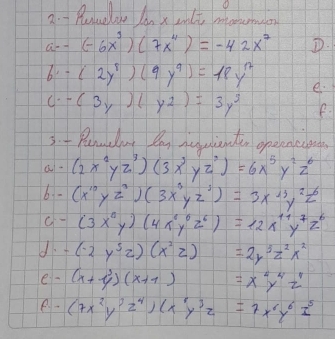 2.- Resuelve las x entre
a.- (-6x³)(7x⁴) = -42x⁷ D.
b.- (2y⁸)(9y⁹) = 18y¹⁷
c.- (3y)(y2) = 3y³ e.
f.
3.- Resuelve las siguientes operaciones
a.- (2x yz³)(3x³yz³) = 6x⁵y²z⁶
b.- (x¹⁰yz³)(3x³yz³) = 3x¹³y²z⁶
c.- (3x y)(4x y⁶z⁶) = 12x¹¹y⁷z⁶
d.- (-2y³z)(x²z) = 2y³z²x²
e.- (x+y)(x+1) = x⁴y⁴z⁴
f.- (7x²y³z⁴)(x⁴y³z = 7x⁶y⁶z⁵